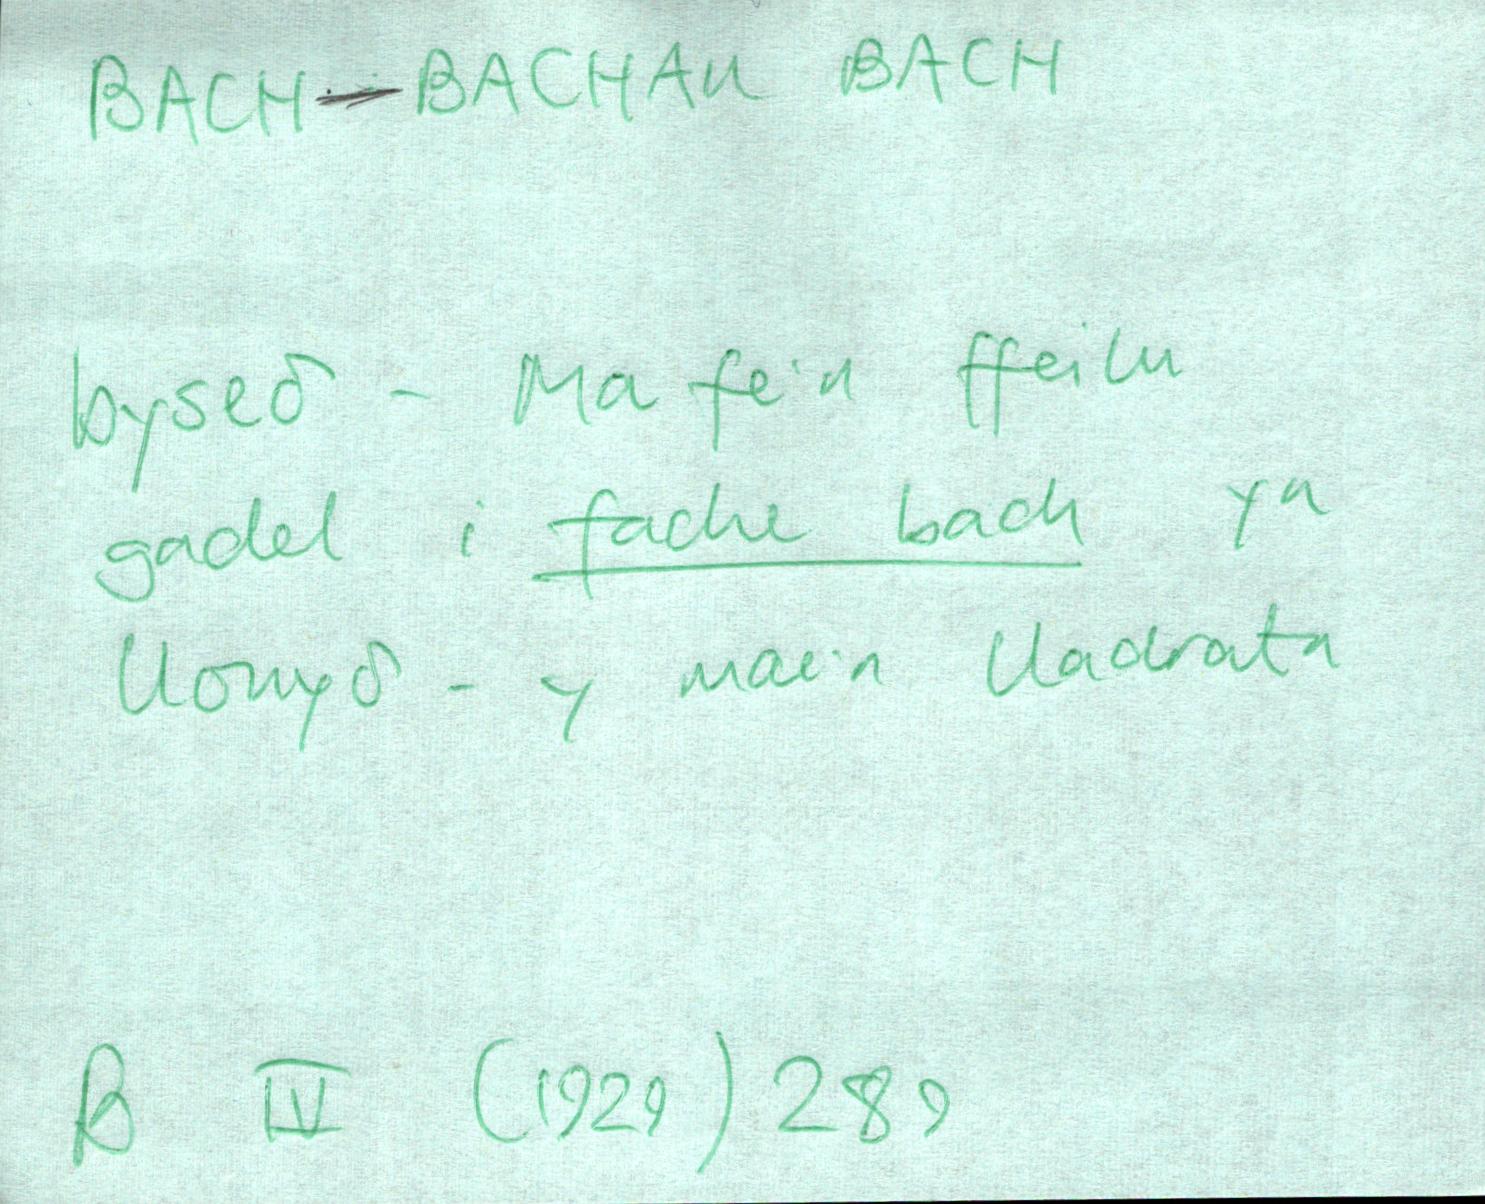 BACH - BACHAU BACH
byseδ - Ma fe'n ffeilu
gadel i fache bach yn
llonyδ - y mae'n lladrata
B IV (1929) 289